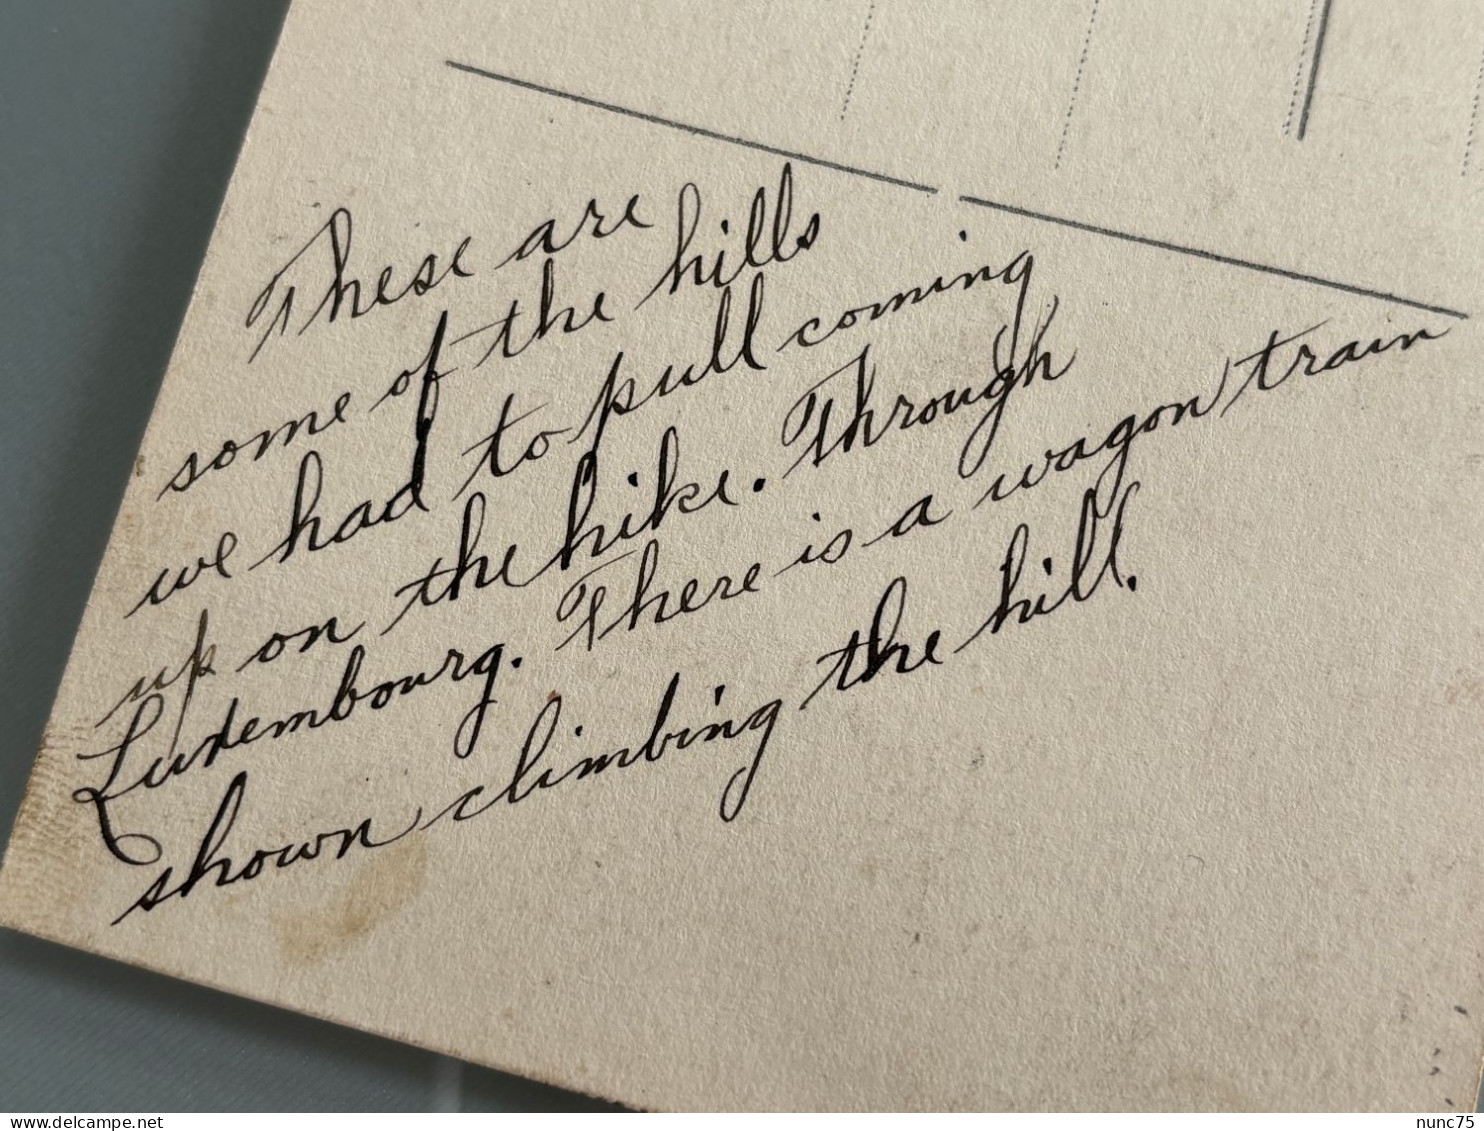 These are
some of the hills
we had to pull coming
up on the hike. Through
Luxembourg. There is a wagon train
shown climbing the hill.
delcampe.net
nunc75